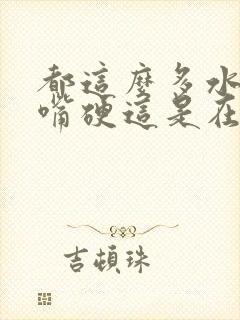 都這麼多水
嘴硬這是在
吉頓珠